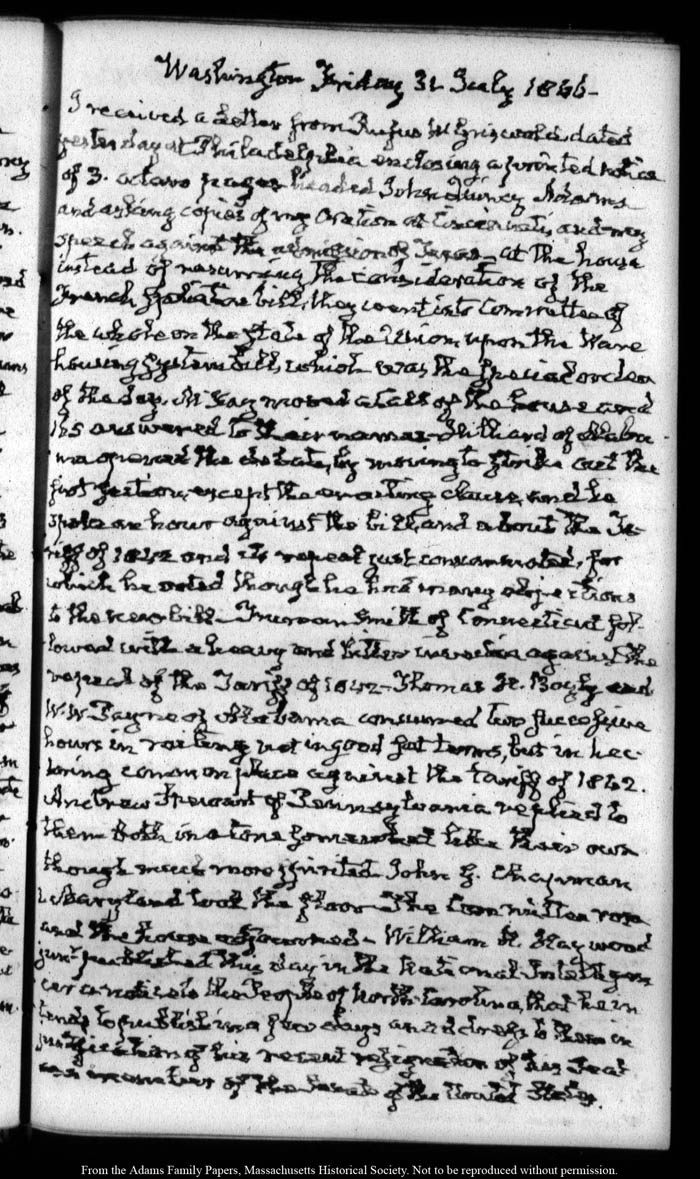 Washington Friday 31 July 1846-
I received a Letter from Rufus W Griswold dated
yesterday at Philadelphia enclosing a printed notice
of 3. octavo pages headed John Quincy Adams
and asking copies of my Oration at Cincinnati, and my
speech against the admission of Texas - at the house
instead of resuming the consideration of the
French Spoliation bill, they went into Committee of
the whole on the State of the Union, upon the Ware
housing System bill, which was the special order
of the day. McKay moved a Call of the house and
125 answered to their names - Hilliard of Alaba
ma opened the debate, by moving to strike out the
first section, except the enacting clause, and he
spoke an hour against the bill, and about the Ta-
riff of 1842 and its repeal just consummated, for
which he voted though he had many objections
to the new bill - Truman Smith of Connecticut fol-
lowed with a heavy and bitter invective against the
repeal of the Tariff of 1842 - Thomas H. Bayly and
W. W. Payne of Alabama consumed two successive
hours in railing not in good set terms, but in hec-
toring common place against the tariff of 1842.
Andrew Stewart of Pennsylvania replied to
them both in a tone somewhat like their own
though much more spirited John G. Chapman
Maryland took the floor - The Committee rose
and the house adjourned - William H. Haywood
junr. published this day in the National Intelligen
cer a notice to the People of North-Carolina, that he in
tends to publish in a few days an address to them in
justification of his recent resignation of his Seat
as a member of the Senate of the United States.
From the Adams Family Papers, Massachusetts Historical Society. Not to be reproduced without permission.